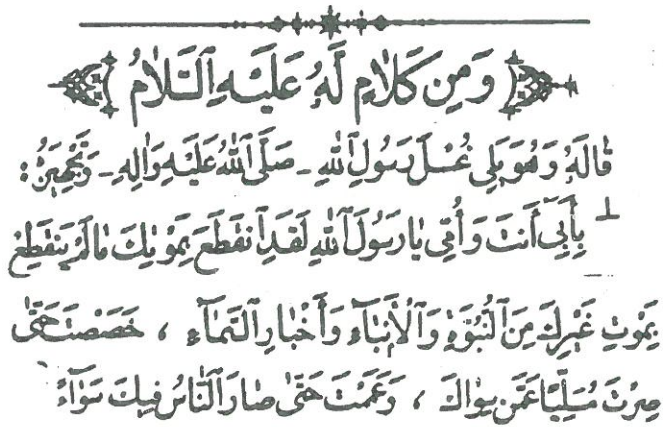 وَمِن كَلَامٍ لَهُ عَلَيْهِ السَّلَامُ
قَالَهُ وَهُوَ يَلِي غُسْلَ رَسُولِ اللهِ - صَلَّى اللهُ عَلَيْهِ وَالِهِ - وَتَجْهِيزَهُ:
بِأَبِي أَنتَ وَأُمِّي يَا رَسُولَ اللهِ لَقَدِ انقَطَعَ بِمَوْتِكَ مَا لَمْ يَنقَطِعْ
بِمَوْتِ غَيْرِكَ مِنَ النُّبُوَّةِ وَالْأَنبَاءِ وَأَخْبَارِ السَّمَاءِ ، خَصَصْتَ حَتَّى
صِرْتَ مُسَلِّيًا عَمَّن سِوَاكَ ، وَعَمَمْتَ حَتَّى صَارَ النَّاسُ فِيكَ سَوَاءً